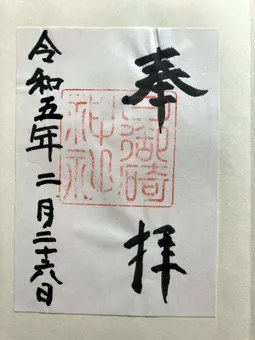 奉拝
日御碕
神社
令和五年 二月二十六日